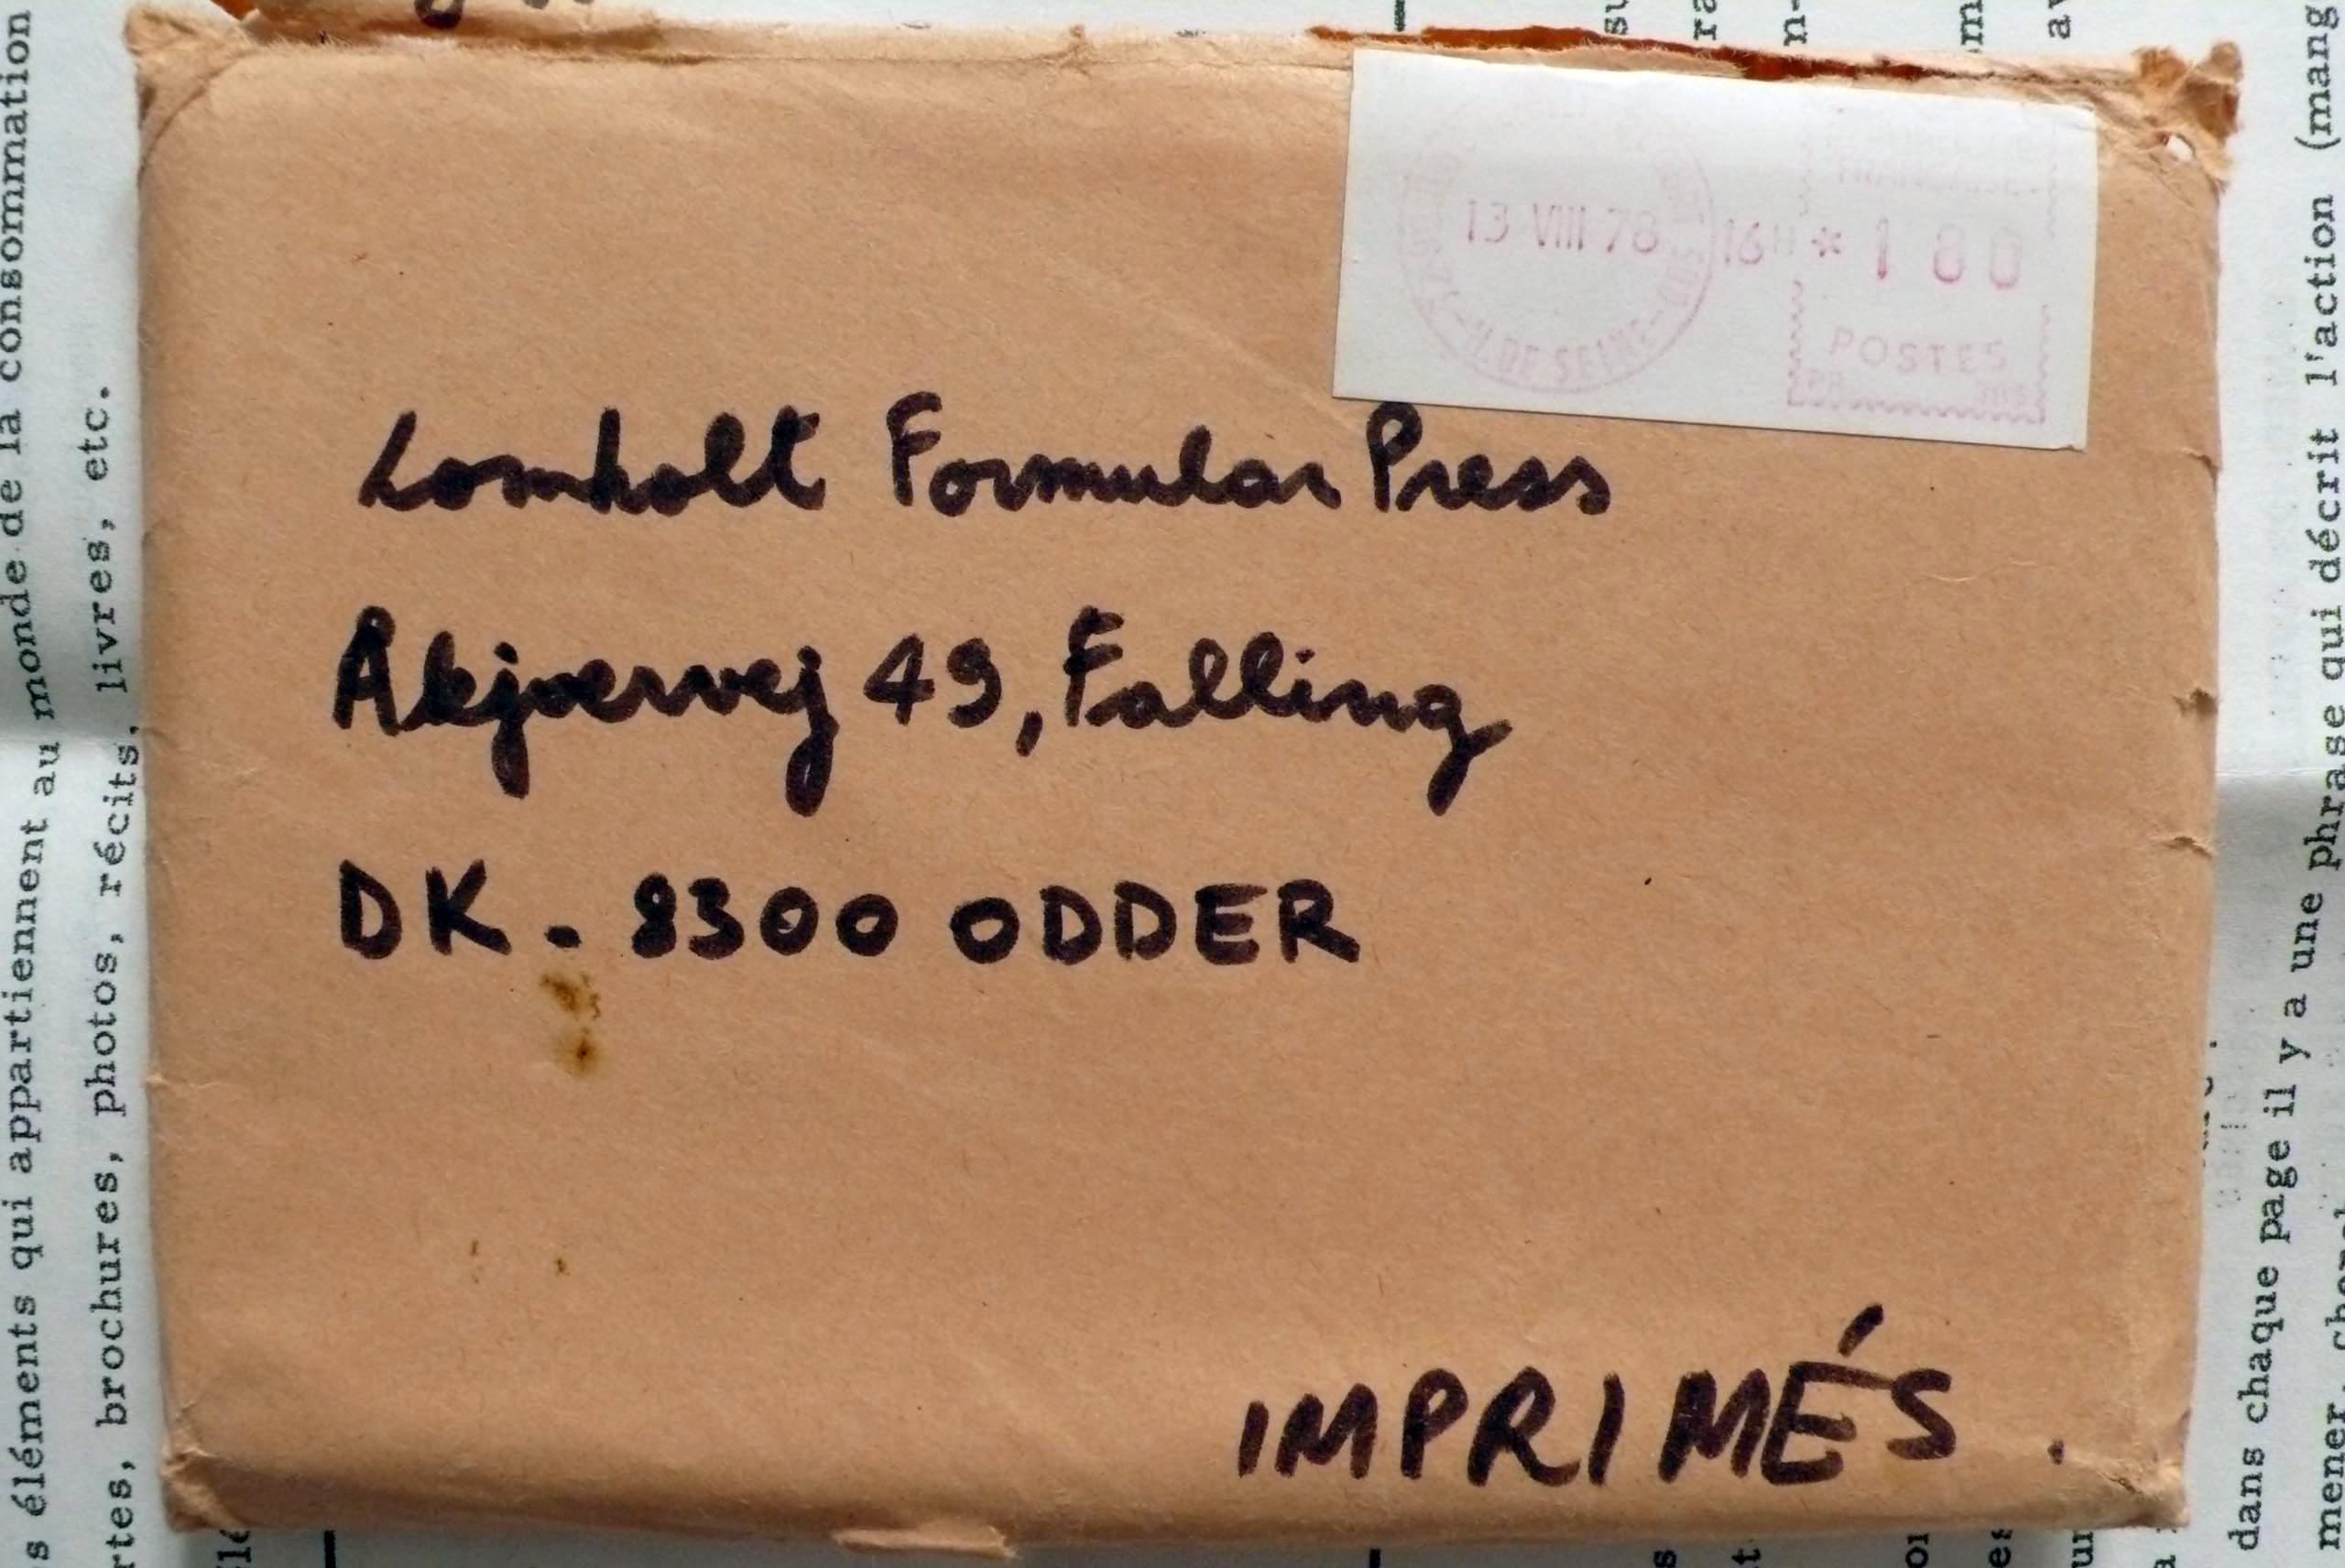 13 VIII 78 16H * 180
FRANÇAISE
H. DE SEINE
POSTES
Lomholt Formular Press
Akjærvej 49, Falling
DK. 8300 ODDER
IMPRIMÉS.
éléments qui appartiennent au monde de la consommation
brochures, photos, récits, livres, etc.
dans chaque page il y a une phrase qui décrit l'action (mang
mener